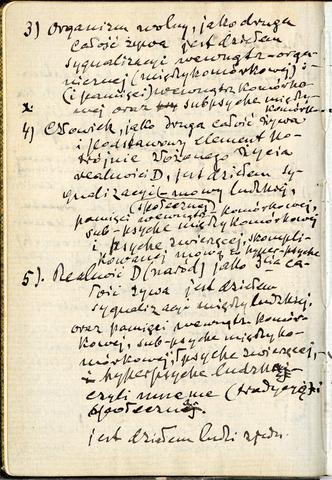 3) Organizm wolny, jako druga
całość żywa jest dziełem
sygnalizacji wewnątrz-orga-
nicznej (międzykomórkowej) i
(i pamięci) wewnątrz komórko-
x. wej oraz sub psyche między
komórk-
4) Człowiek, jako druga całość żywa
i podstawowy element po-
trójnie złożonego życia
realności D, jest dziełem sy-
gnalizacji - mowy ludzkiej,
(społecznej)
pamięci wewnątrz-komórkowej,
sub-psyche międzykomórkowej
i psyche zwierzęcej, skompli-
kowanej mową - hyper-psyche
5). Realność D (naród) jako 3cia ca-
łość żywa jest dziełem
sygnalizacji międzyludzkiej,
oraz pamięci wewnątrz-komór-
kowej, sub-psyche międzyko-
mórkowej, psyche zwierzęcej,
i hyperpsyche ludzkiej
czyli mneme (tradycji)
społecznej.
jest dziełem ludzi